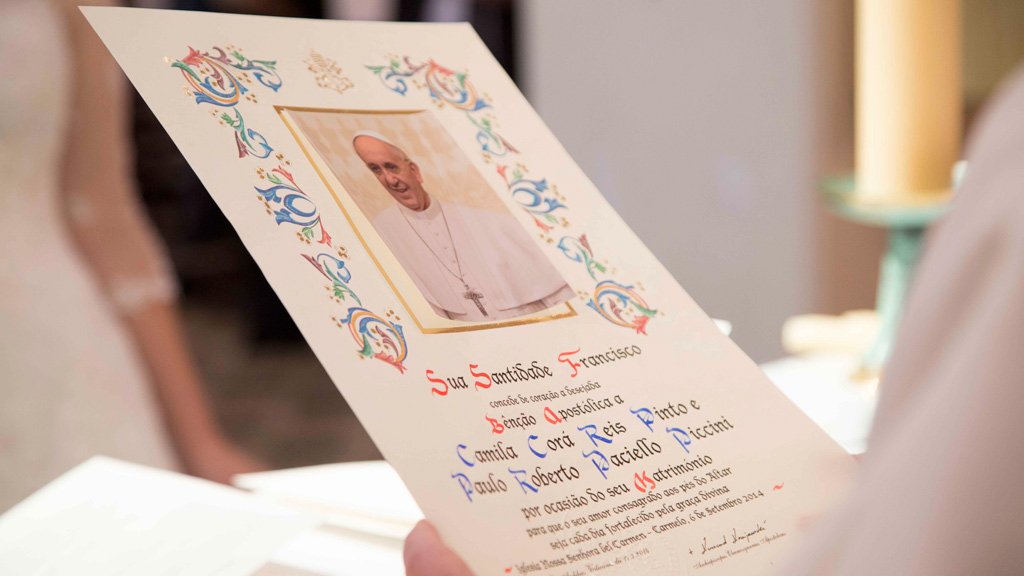 Sua Santidade Francisco
concede de coração a desejada
Bênção Apostólica a
Camila Corá Reis Pinto e
Paulo Roberto Paciello Piccini
por ocasião do seu Matrimonio
para que o seu amor consagrado aos pés do Altar
seja cada dia fortalecido pela graça Divina
Igleia Nossa Senhora del Carmen - Carmelo, 6 de Setembro 2014